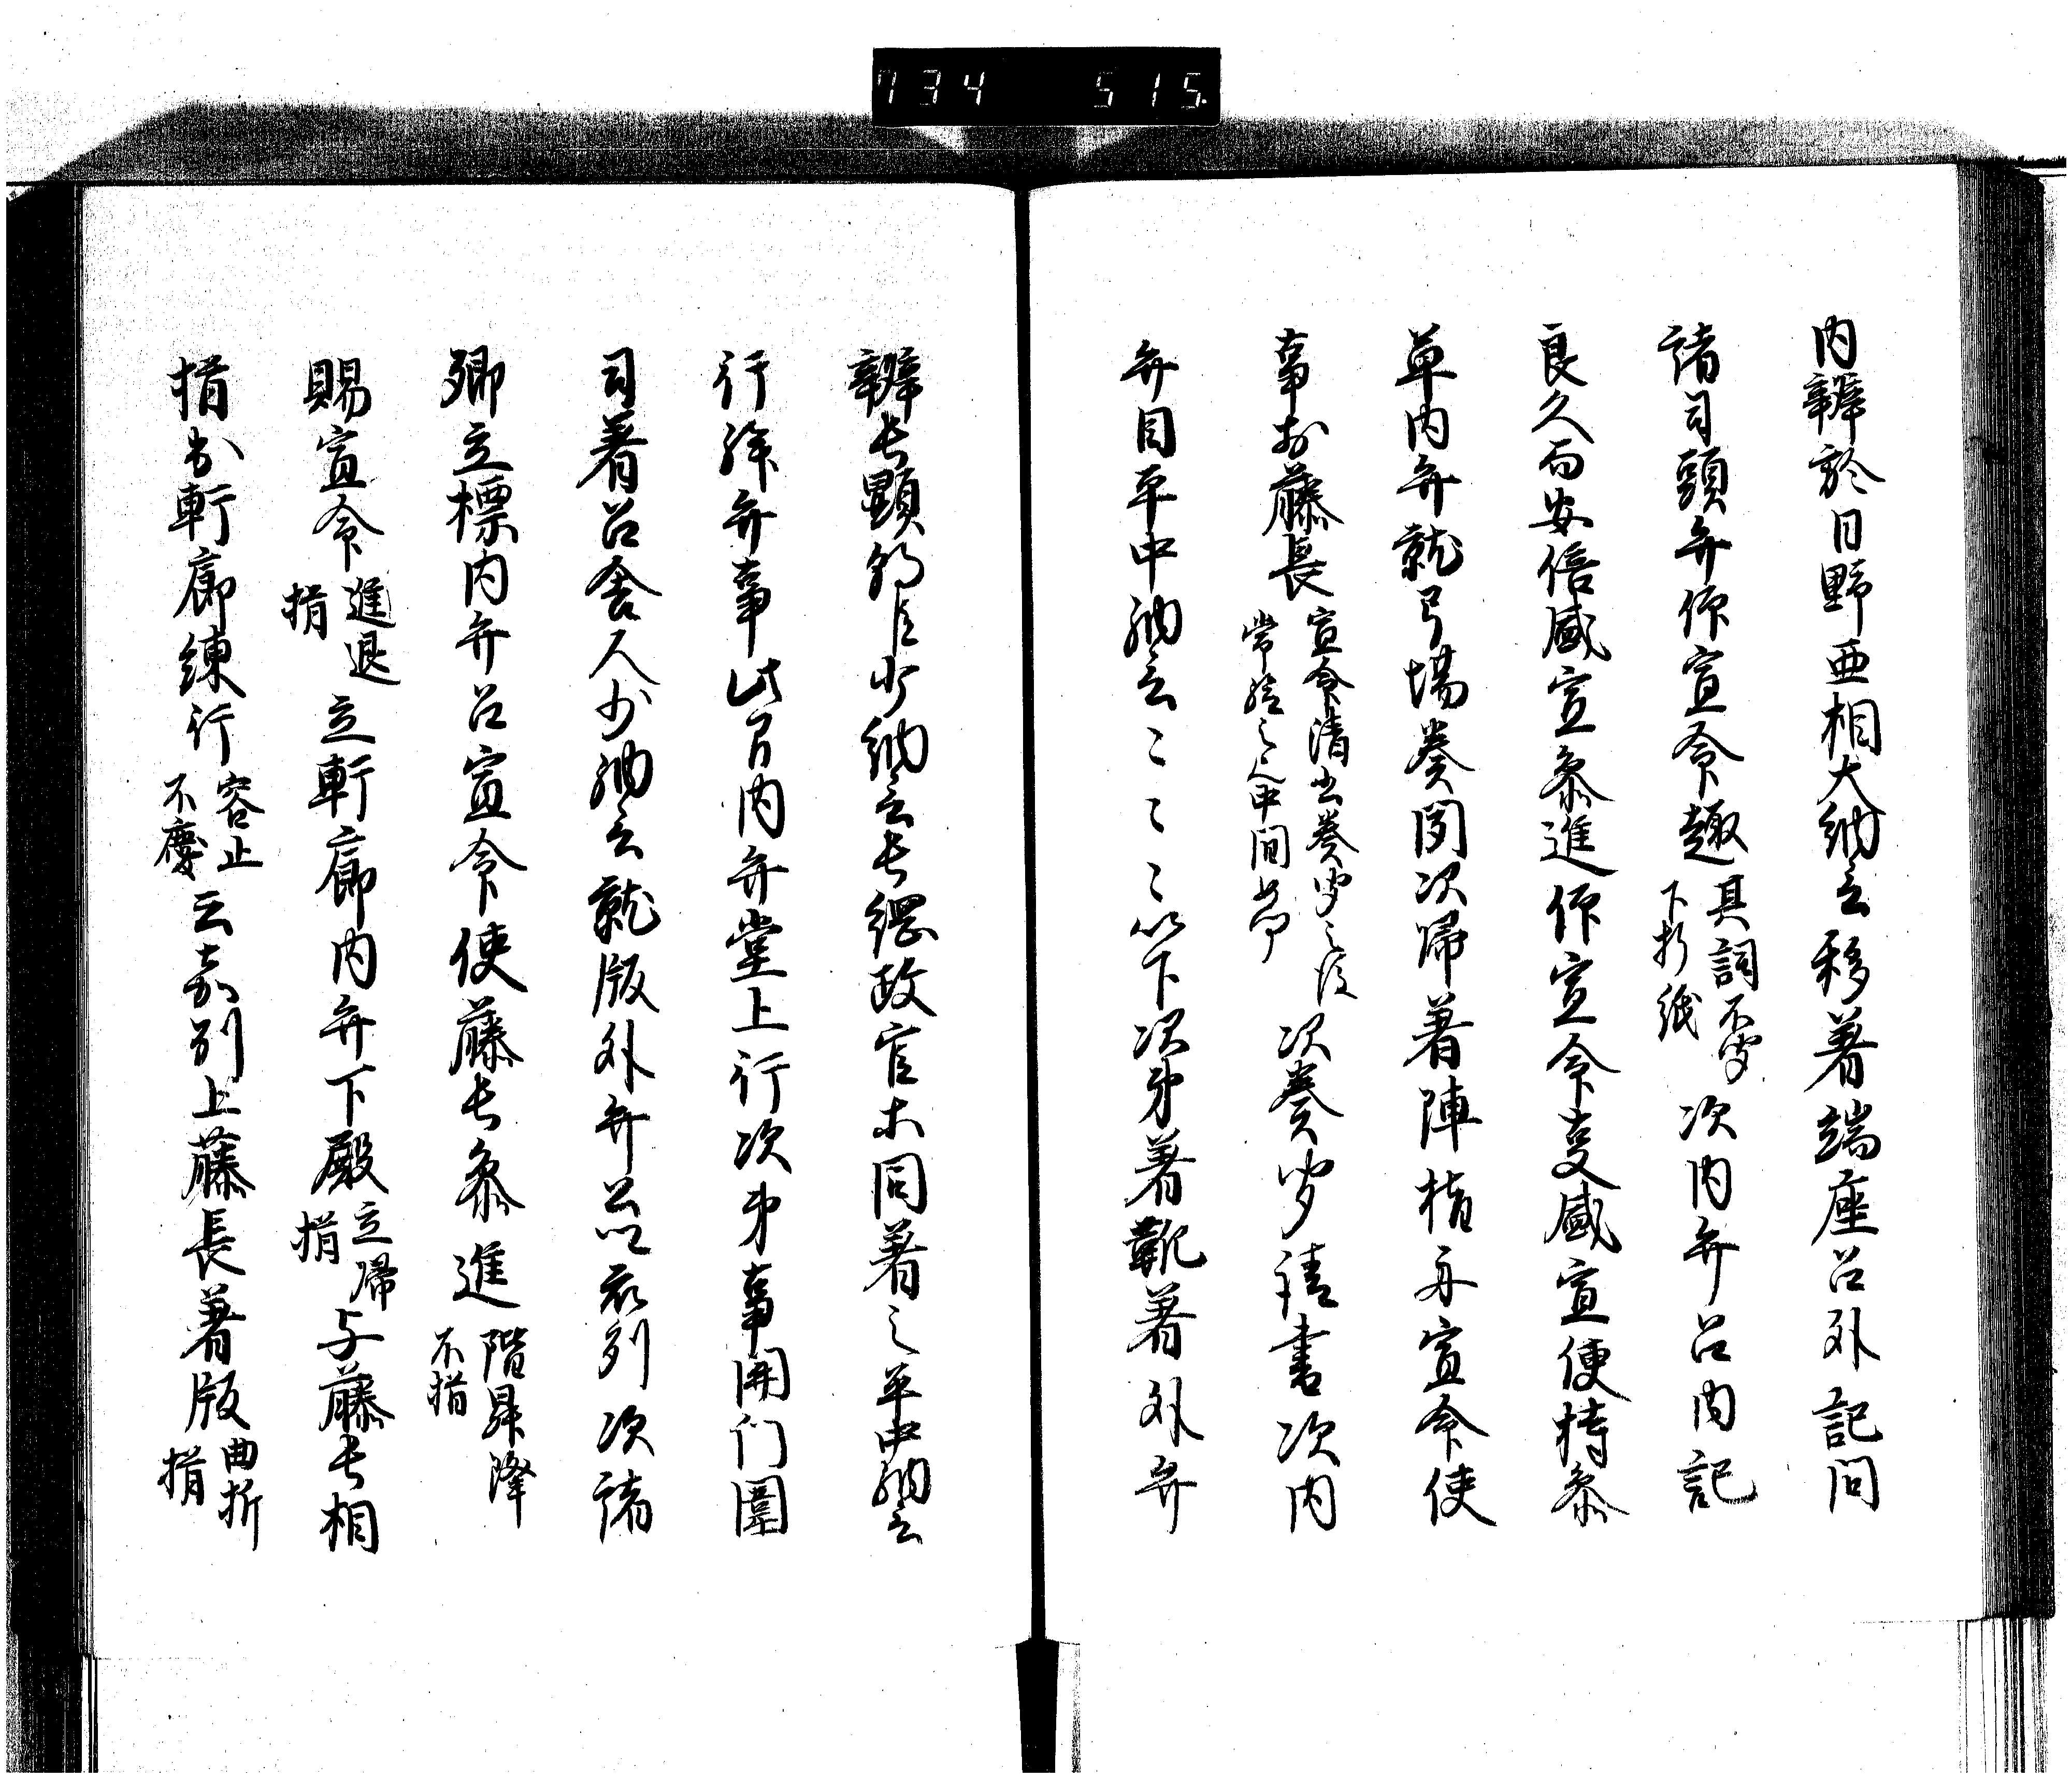 734 515
内辨於日野亜相大納言移著端座召外記問
諸司頭弁仰宣命趣其詞不聞下折紙次内弁召内記
良久而安倍盛宣参進仰宣命畢盛宣便持参
草内弁就弓場奏聞次帰著陣揖再宣命使
事於藤長宣命清書奏聞之後常給之中間次奏聞清書次内
弁目平中納言ミミミ以下次第著靴著外弁
辨長顕朝臣少納言長綱政官木同著之平中納言
行弁事此間内弁堂上行次第事開門闈
司著召舎人少納言就版外弁列次諸
卿立標内弁召宣命使藤長参進階昇降不揖
賜宣命進退揖立軒廊内弁下殿立帰揖与藤長相
揖出軒廊練行容止不慶云々別上藤長著版曲折揖